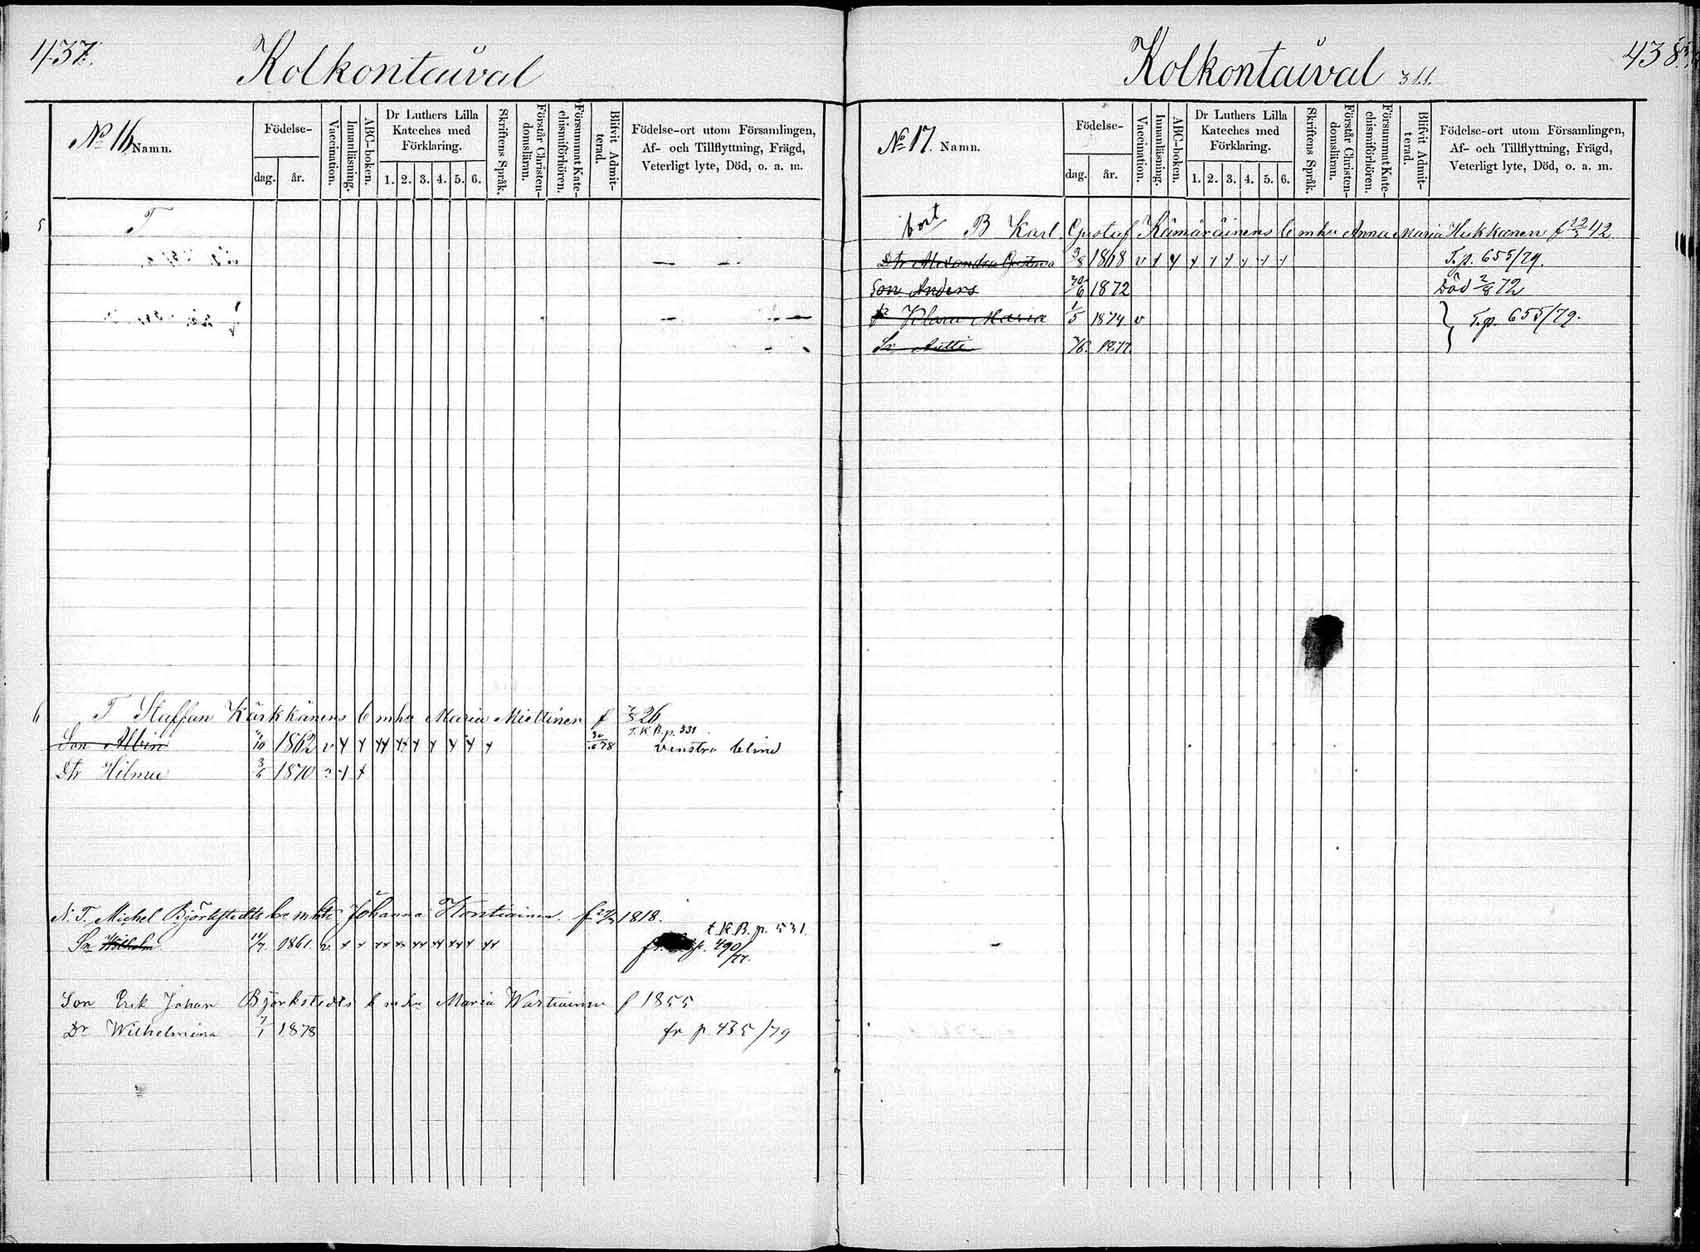 437.
Kolkontaival
No 16. Namn.
Födelse-
dag. år.
Vaccination.
Innanläsning.
ABC-boken.
Dr Luthers Lilla
Kateches med
Förklaring.
1. 2. 3. 4. 5. 6.
Skriftens Språk.
Förstår Christen-
domsläran.
Försummat Kate-
chismiförhören.
Blifvit Admit-
terad.
Födelse-ort utom Församlingen,
Af- och Tillflyttning, Frägd,
Veterligt lyte, Död, o. a. m.
5
T
6 T Staffan Kärkkänens b m hu Maria Miettinen f 26
T.K.B.p. 531
Son Albin 1862 venstra blind
Dtr Hilma 3/6 1870
N. T. Michel Björkstedts b m htr Johanna Kontiainen f 1818.
t.K.B. p. 531
Sn Wilhelm 1861. p. 490/77.
Son Erik Johan Björkstedts b m hu Maria Wartiainen f 1855
Dr Wilhelmina 7/1 1878 fr p. 435/79
438
Kolkontaival
No 17. Namn.
Födelse-
dag. år.
Vaccination.
Innanläsning.
ABC-boken.
Dr Luthers Lilla
Kateches med
Förklaring.
1. 2. 3. 4. 5. 6.
Skriftens Språk.
Förstår Christen-
domsläran.
Försummat Kate-
chismiförhören.
Blifvit Admit-
terad.
Födelse-ort utom Församlingen,
Af- och Tillflyttning, Frägd,
Veterligt lyte, Död, o. a. m.
bort B Karl Gustaf Kämäräinens b m hu Anna Maria Hukkanen f 42
Dtr Alexandra 1868 T.p. 655/79.
Son Anders 1872 Död 2/8 72
Klara Maria 1/5 1874 v T.p. 655/79.
Sn Antti 1877